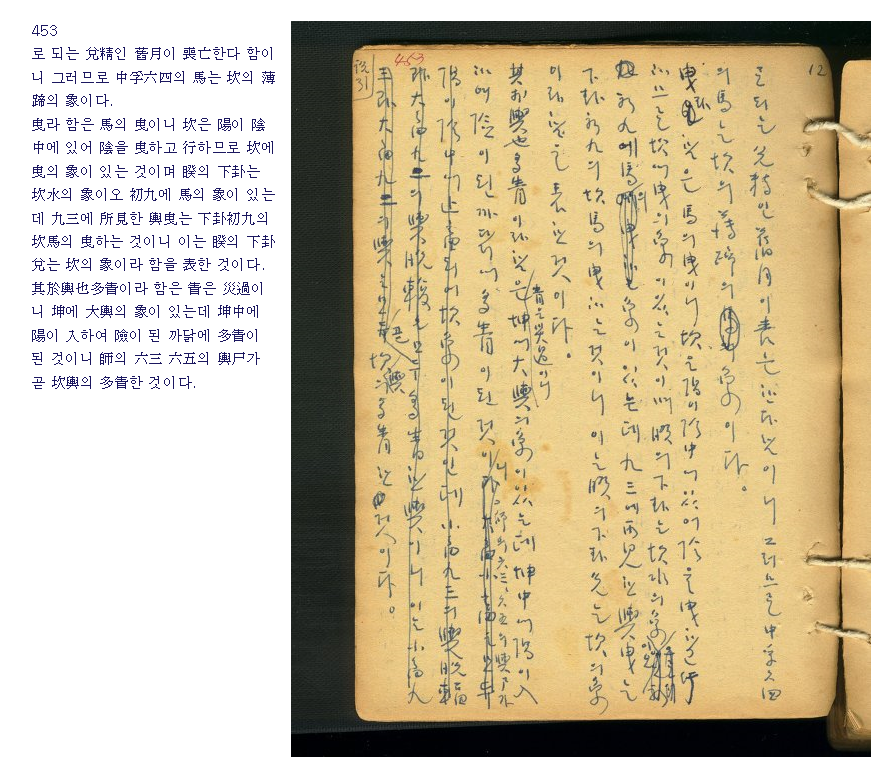 453
로 되는 兌精인 舊月이 喪亡한다 함이
니 그러므로 中孚六四의 馬는 坎의 薄
蹄의 象이다.
曳라 함은 馬의 曳이니 坎은 陽이 陰
中에 있어 陰을 曳하고 行하므로 坎에
曳의 象이 있는 것이며 睽의 下卦는
坎水의 象이오 初九에 馬의 象이 있는
데 九三에 所見한 輿曳는 下卦初九의
坎馬의 曳하는 것이니 이는 睽의 下卦
兌는 坎의 象이라 함을 表한 것이다.
其於輿也多眚이라 함은 眚은 災過이
니 坤에 大輿의 象이 있는데 坤中에
陽이 入하여 險이 된 까닭에 多眚이
된 것이니 師의 六三 六五의 輿尸가
곧 坎輿의 多眚한 것이다.
12
453
說31
로 되는 兌精인 舊月이 喪亡한다 함이니 그러므로 中孚六四
의 馬는 坎의 薄蹄의 象이다.
曳라 함은 馬의 曳이니 坎은 陽이 陰中에 있어 陰을 曳하고 行
하므로 坎에 曳의 象이 있는 것이며 睽의 下卦는 坎水의 象이오
初九에 馬의 象이 있는데 九三에 所見한 輿曳는
下卦初九의 坎馬의 曳하는 것이니 이는 睽의 下卦兌는 坎의 象
이라 함을 表한 것이다.
其於輿也多眚이라 함은 眚은 災過이니 坤에 大輿의 象이 있는데 坤中에 陽이 入
하여 險이 된 까닭에 多眚이 된 것이니 師의 六三 六五의 輿尸가
곧 坎輿의 多眚한 것이다.